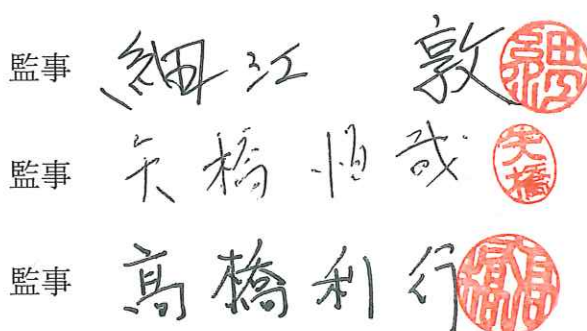 監事 細江 敦 細江
監事 矢橋恒哉 矢橋
監事 高橋利行 高橋